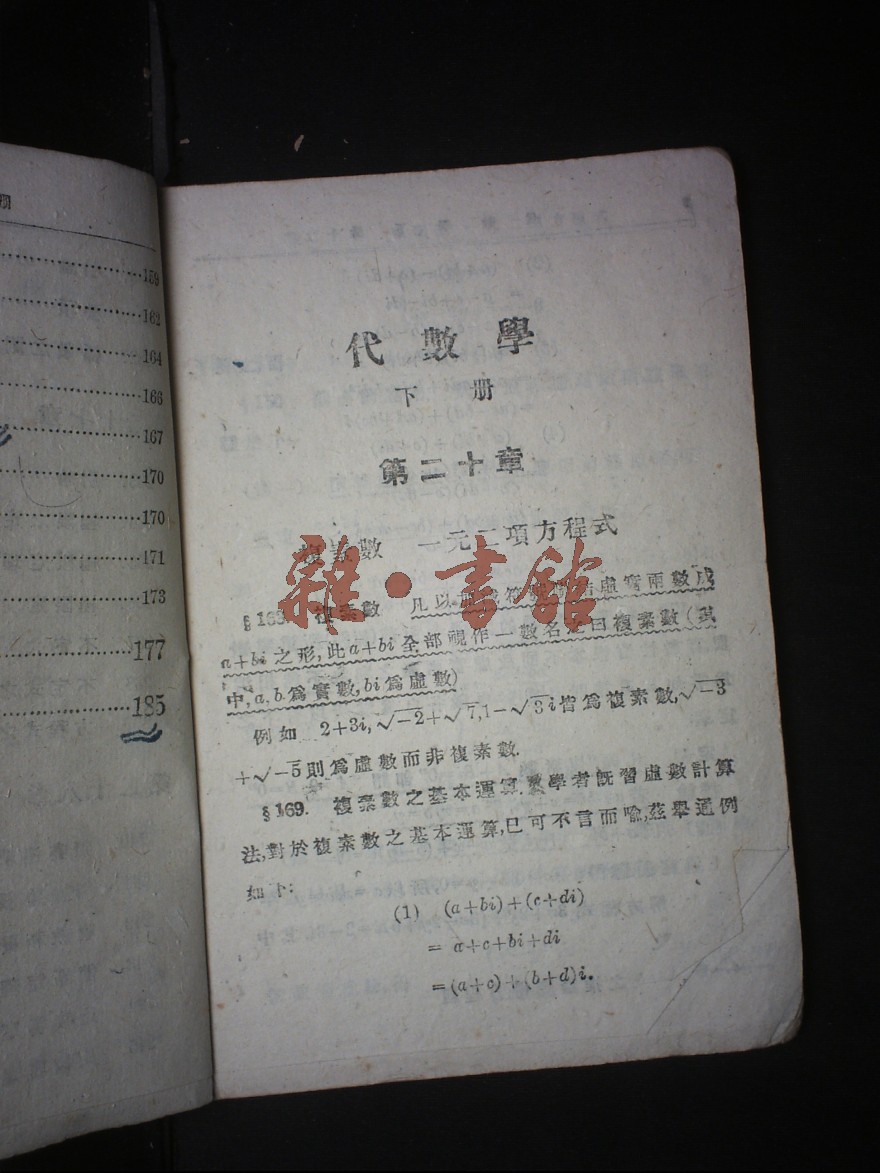 册
159
162
164
166
167
170
170
171
173
177
185
代數學
下册
第二十章
複素數 一元二項方程式
§168. 複素數 凡以 符號 結虛實兩數成
a+bi之形,此a+bi全部視作一數名之曰複素數(式
中,a,b爲實數,bi爲虛數)
例如 2+3i,√−2+√7,1−√3i皆爲複素數,√−3
+√−5則爲虛數而非複素數.
§169. 複素數之基本運算.學者旣習虛數計算
法,對於複素數之基本運算,已可不言而喻,茲舉通例
如下:
(1) (a+bi)+(c+di)
= a+c+bi+di
=(a+c)+(b+d)i.
雜·書館